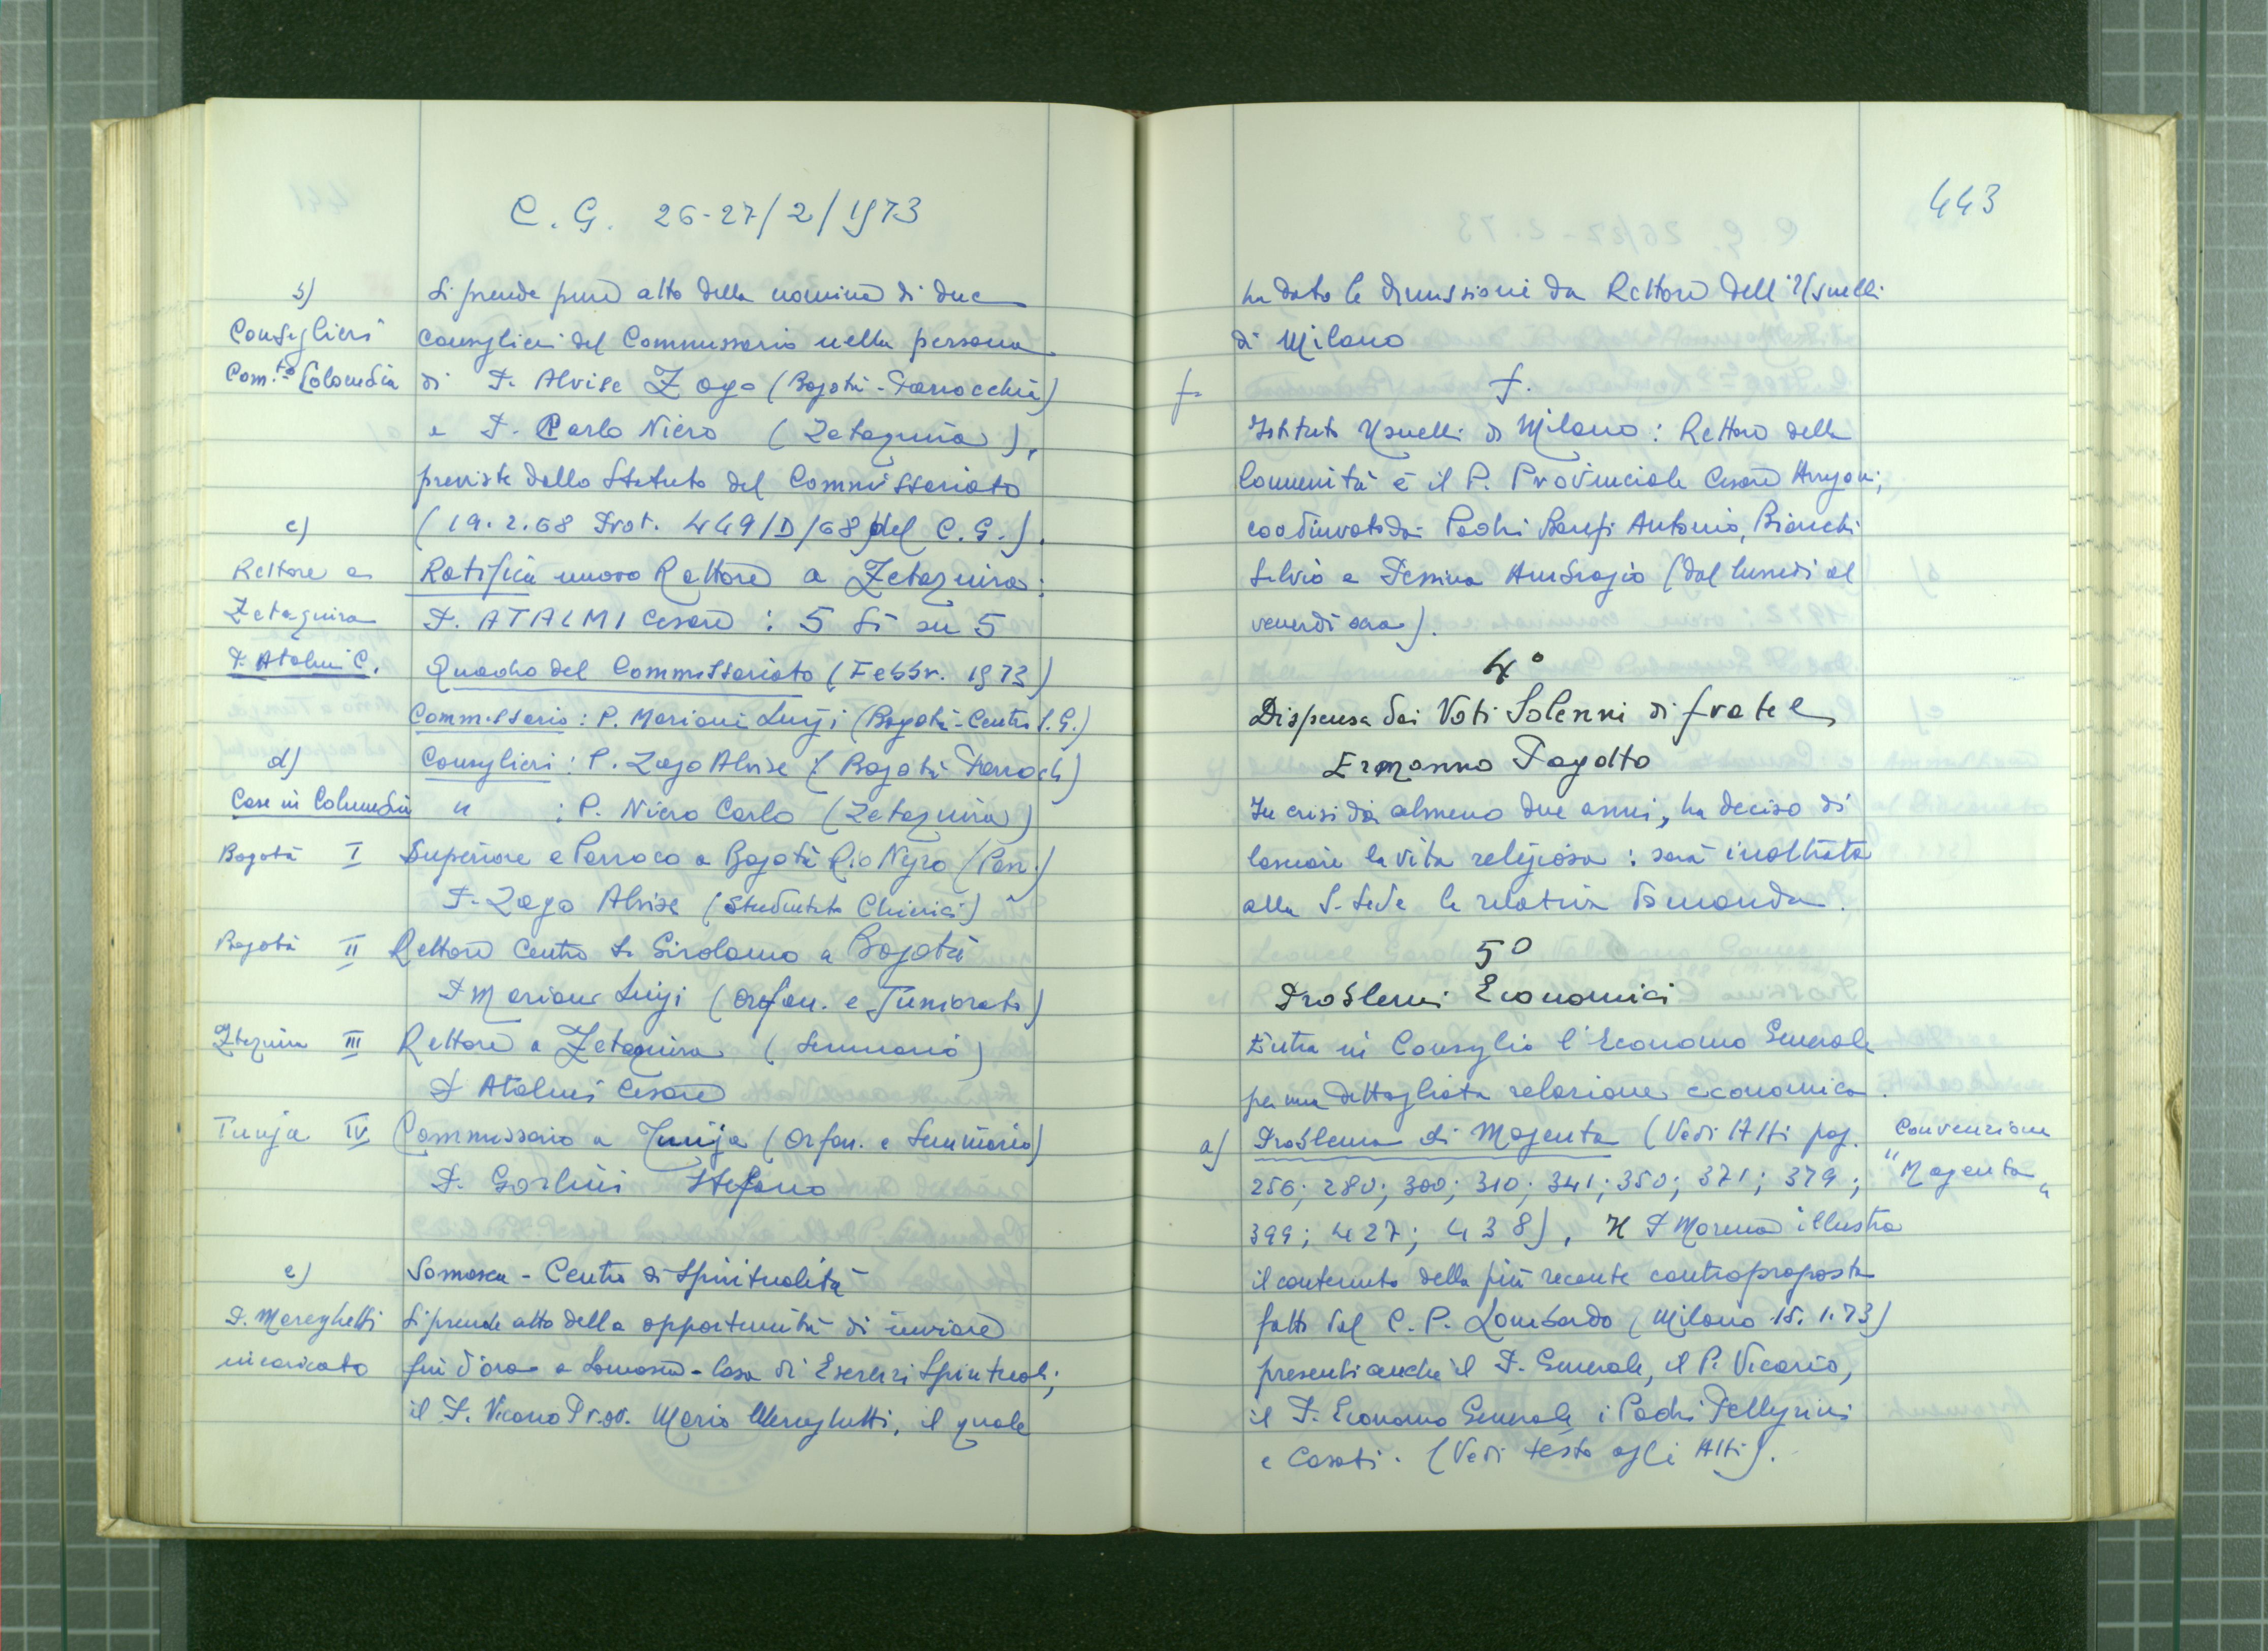 C. G. 26-27/2/1973
b)
Consiglieri
Com.to Colombia
Si prende pure atto della nomina di due
Consiglieri del Commissario nella persona
di P. Alvise Zago (Bogotà-Parrocchia)
e P. Carlo Niero (Zetaquira),
previste dallo Statuto del Commissariato
(19.2.68 Prot. 449/D/68 del C.G.).
c)
Rettore a
Zetaquira
P. Atalmi C.
Ratifica nuovo Rettore a Zetaquira:
P. ATALMI Cesare : 5 Sì su 5
Quadro del Commissariato (Febbr. 1973)
Commissario : P. Mariani Luigi (Bogotà-Centro S.G.)
d)
Case in Columbia
Consiglieri : P. Zago Alvise (Bogotà Parroch)
" : P. Niero Carlo (Zetaquira)
Bogotà I Superiore e Parroco a Bogotà Rio Negro (Parr.)
P. Zago Alvise (Studentato Chierici)
Bogotà II Rettore Centro S. Girolamo a Bogotà
P Mariani Luigi (Orfan. e Juniorato)
Ztaquira III Rettore a Zetaquira (Seminario)
P Atalmi Cesare
Tunja IV Commissario a Tunja (Orfan. e Seminario)
P. Gorlini Stefano
e)
P. Mereghetti
incaricato
Somasca - Centro di Spiritualità
Si prende atto della opportunità di inviare
fin d'ora a Somasca - Casa di Esercizi Spirituali;
il P. Vicario Prov. Mario Mereghetti, il quale
443
ha dato le dimissioni da Rettore dell'Usuelli
di Milano
f-
f.
Istituto Usuelli di Milano : Rettore della
Comunità è il P. Provinciale Cesare Arrigoni;
coadiuvato da Padri Banfi Antonio, Bianchi
Silvio e Pessina Ambrogio (dal lunedì al
venerdì sera).
4°
Dispensa dai Voti Solenni di fratel
Ermanno Pagotto
In crisi da almeno due anni, ha deciso di
lasciare la vita religiosa : sarà inoltrata
alla S. Sede la relativa domanda.
5°
Problemi Economici
Entra in Consiglio l'Economo Generale
per una dettagliata relazione economica.
a) Problema di Magenta (Vedi Atti pag.
Convenzione
"Magenta"
256; 280; 300; 310; 341; 350; 371; 379;
399; 427; 438). Il P Moreno illustra
il contenuto della più recente controproposta
fatta dal C. P. Lombardo (Milano 15.1.73)
presenti anche il P. Generale, il P. Vicario,
il P. Economo Generale, i Padri Pellegrini
e Casati. (Vedi testo agli Atti).